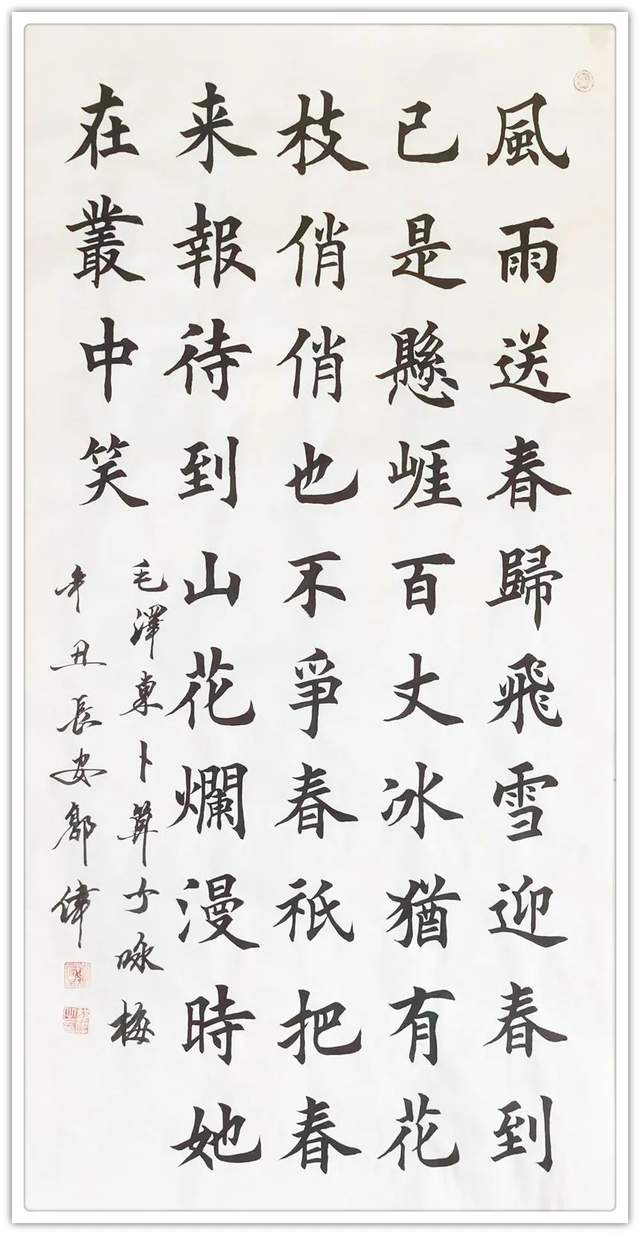 風雨送春歸飛雪迎春到
已是懸崕百丈冰猶有花
枝俏俏也不爭春祇把春
来報待到山花爛漫時她
在叢中笑
毛澤東卜算子咏梅
辛丑長安郭偉